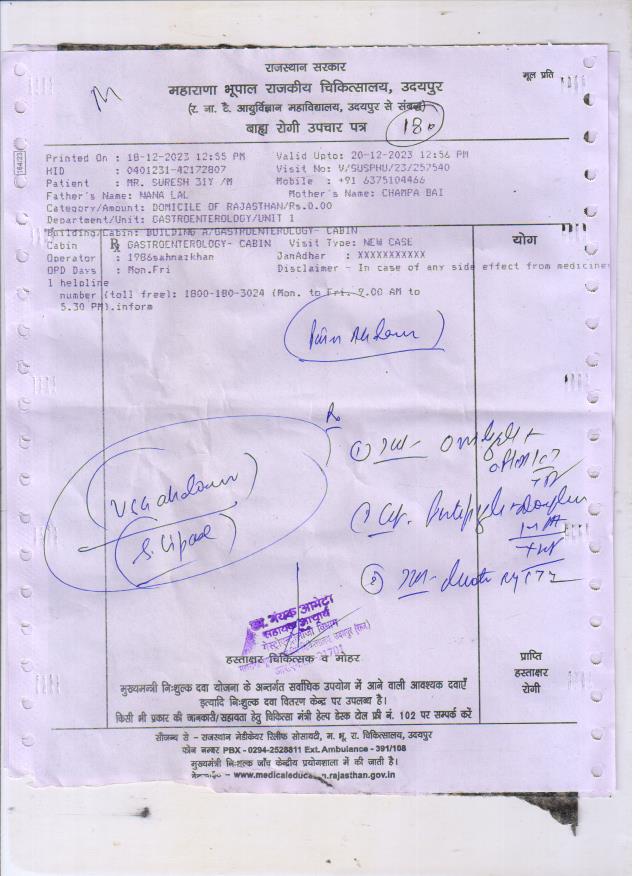 राजस्थान सरकार
मूल प्रति
महाराणा भूपाल राजकीय चिकित्सालय, उदयपुर
(र. ना. टै. आयुर्विज्ञान महाविद्यालय, उदयपुर से संबद्ध)
बाह्य रोगी उपचार पत्र
180
Printed On : 18-12-2023 12:55 PM Valid Upto: 20-12-2023 12:56 PM
HID : 0401231-42172807 Visit No: V/SUSPHU/23/257540
Patient : MR. SURESH 31Y /M Mobile : +91 6375104466
Father's Name: NANA LAL Mother's Name: CHAMPA BAI
Category/Amount: DOMICILE OF RAJASTHAN/Rs.0.00
Department/Unit: GASTROENTEROLOGY/UNIT 1
Building/Cabin: BUILDING A/GASTROENTEROLOGY- CABIN
Cabin ℞ GASTROENTEROLOGY- CABIN Visit Type: NEW CASE
योग
Operator : 1986sahnazkhan JanAdhar : XXXXXXXXXXX
OPD Days : Mon.Fri Disclaimer - In case of any side effect from medicine
1 helpline
number (toll free): 1800-180-3024 (Mon. to Fri. 9.00 AM to
5.30 PM).inform
Pain Abdomen
USG abdomen
S. Lipase
डॉ. मयंक आमेटा
सहायक आचार्य
हस्ताक्षर चिकित्सक व मोहर
प्राप्ति
हस्ताक्षर
रोगी
मुख्यमन्त्री निःशुल्क दवा योजना के अन्तर्गत सर्वाधिक उपयोग में आने वाली आवश्यक दवाएँ
इत्यादि निःशुल्क दवा वितरण केन्द्र पर उपलब्ध है।
किसी भी प्रकार की जानकारी/सहायता हेतु चिकित्सा मंत्री हेल्प डेस्क टोल फ्री नं. 102 पर सम्पर्क करें
सौजन्य से - राजस्थान मेडीकेयर रिलीफ सोसायटी, म. भू. रा. चिकित्सालय, उदयपुर
फोन नम्बर PBX - 0294-2528811 Ext. Ambulance - 391/108
मुख्यमन्त्री निःशुल्क जाँच केन्द्रीय प्रयोगशाला में की जाती है।
www.medicaleducation.rajasthan.gov.in